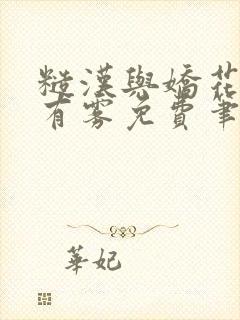 糙漢與嬌花
有雾免費筆
華妃